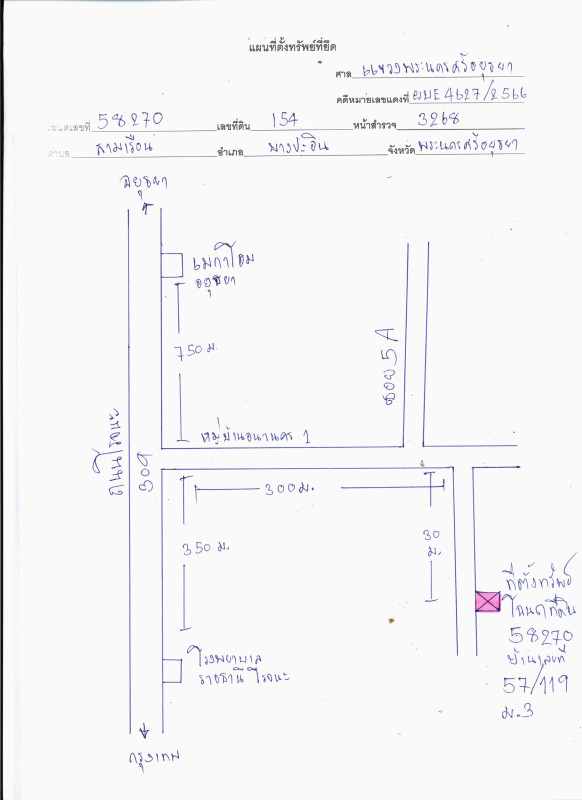 แผนที่ตั้งทรัพย์ที่ยึด
ศาล แขวงพระนครศรีอยุธยา
คดีหมายเลขแดงที่ ผบE4627/2566
โฉนดเลขที่ 58270 เลขที่ดิน 154 หน้าสำรวจ 3268
ตำบล สามเรือน อำเภอ บางปะอิน จังหวัด พระนครศรีอยุธยา
อยุธยา
เมกาโฮม
อยุธยา
750 ม.
ซอย 5A
หมู่บ้านธนานคร 1
ถนนโรจนะ
309
300 ม.
350 ม.
30
ม.
ที่ตั้งทรัพย์
โฉนดที่ดิน
58270
บ้านเลขที่
57/119
ม.3
โรงพยาบาล
ราชธานี โรจนะ
กรุงเทพ